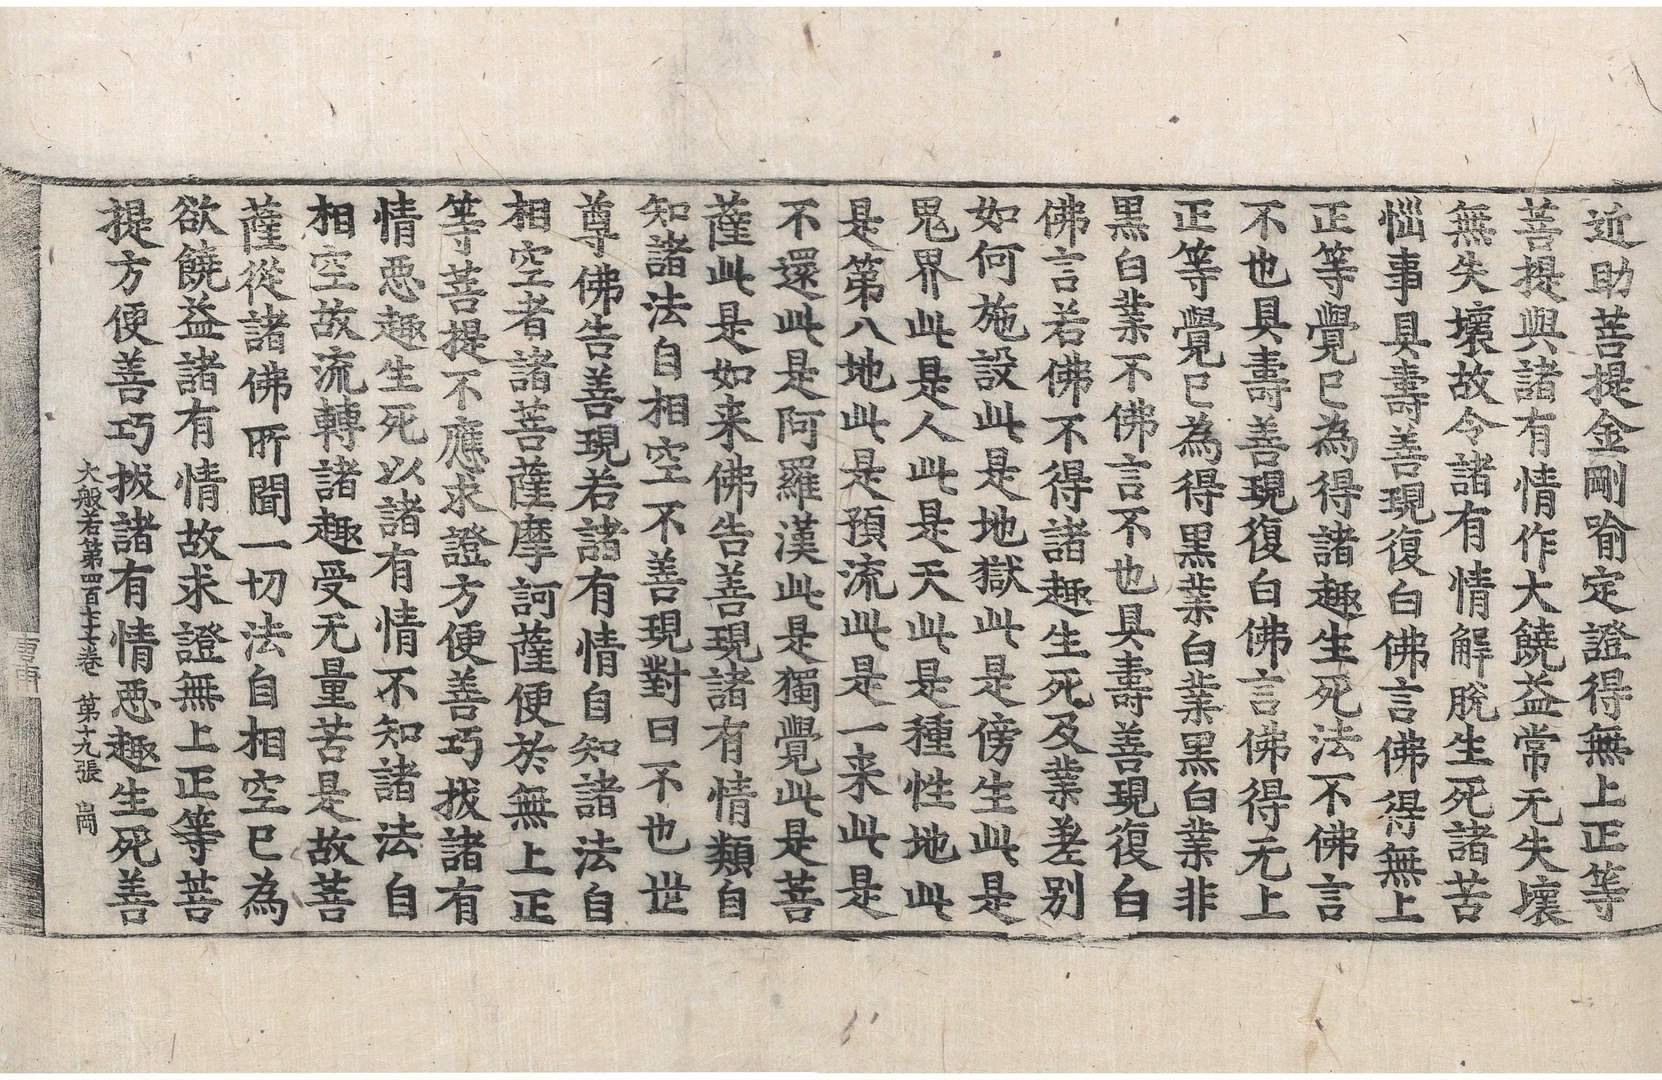 近助菩提金剛喻定證得無上正等
菩提與諸有情作大饒益常无失壞
無失壞故令諸有情解脫生死諸苦
惱事具壽善現復白佛言佛得無上
正等覺已為得諸趣生死法不佛言
不也具壽善現復白佛言佛得无上
正等覺已為得黑業白業黑白業非
黑白業不佛言不也具壽善現復白
佛言若佛不得諸趣生死及業差別
如何施設此是地獄此是傍生此是
鬼界此是人此是天此是種性地此
是第八地此是預流此是一来此是
不還此是阿羅漢此是獨覺此是菩
薩此是如来佛告善現諸有情類自
知諸法自相空不善現對曰不也世
尊佛告善現若諸有情自知諸法自
相空者諸菩薩摩訶薩便於無上正
等菩提不應求證方便善巧拔諸有
情惡趣生死以諸有情不知諸法自
相空故流轉諸趣受无量苦是故菩
薩從諸佛所聞一切法自相空已為
欲饒益諸有情故求證無上正等菩
提方便善巧拔諸有情惡趣生死善
大般若第四百七十七卷 第十九張